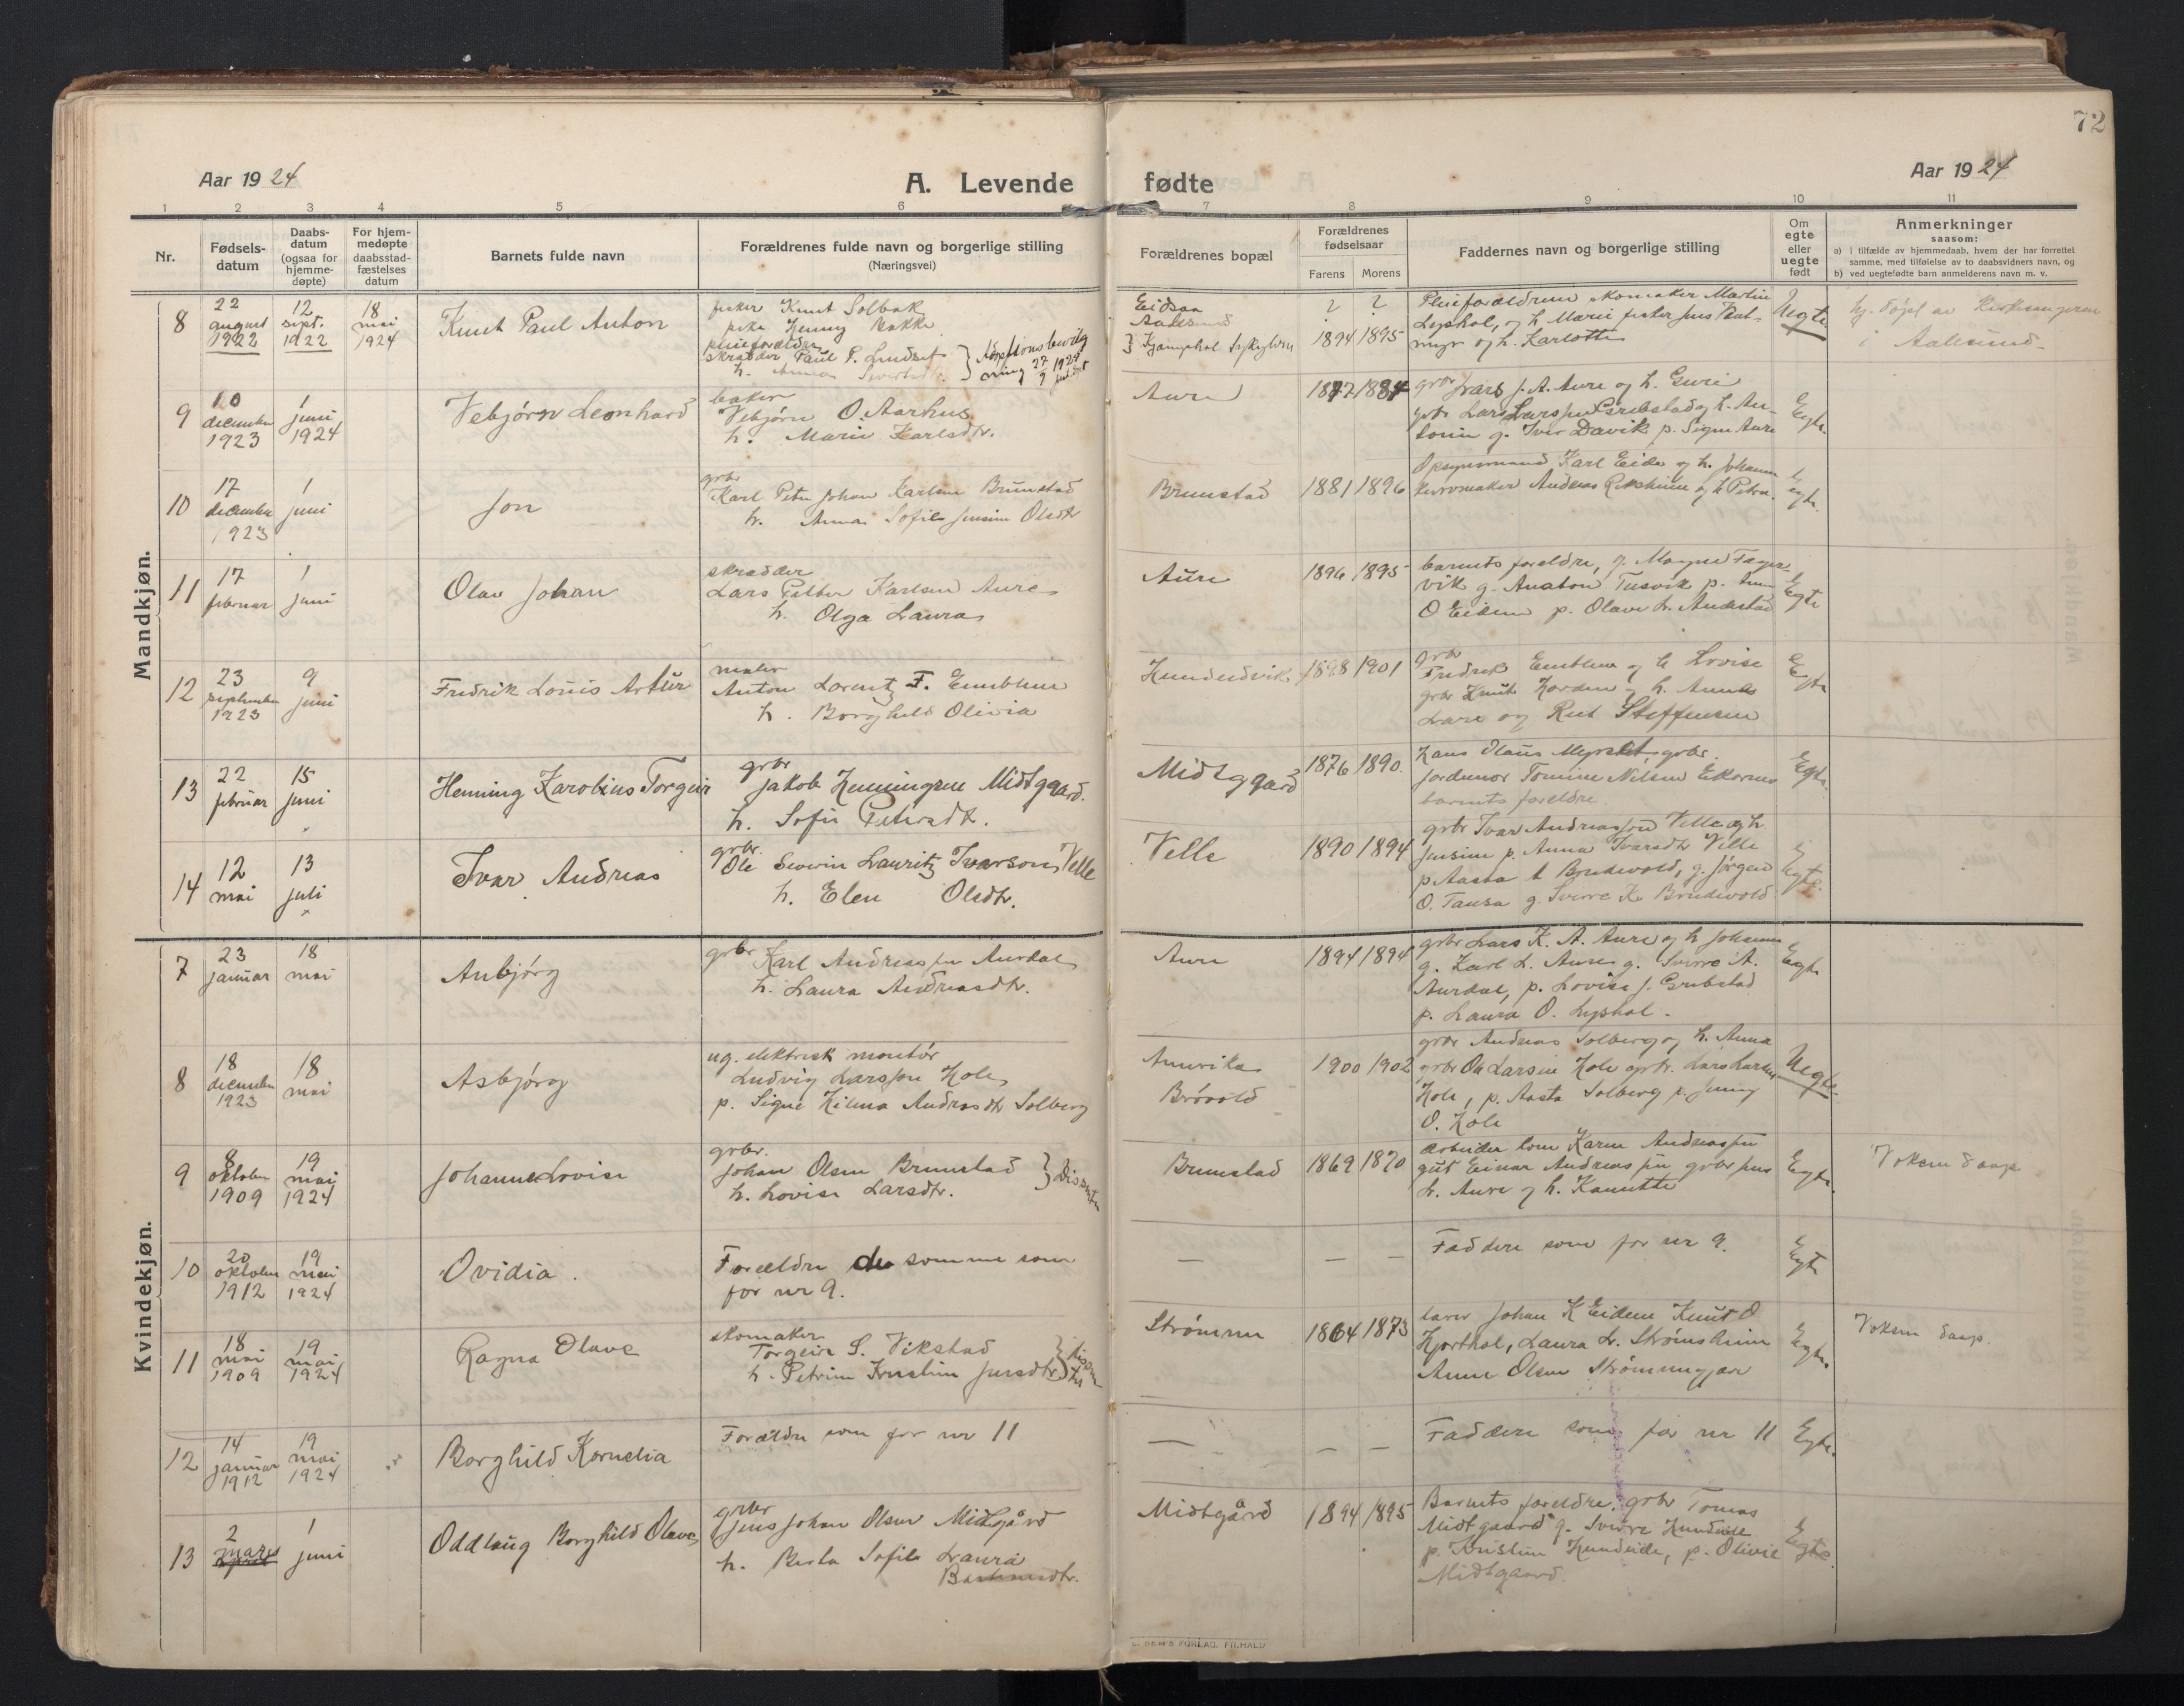 72
Aar 1924
A. Levende fødte
Aar 1924
1 2 3 4 5 6 7 8 9 10 11
Nr.
Fødsels-
datum
Daabs-
datum
(ogsaa for
hjemme-
døpte)
For hjem-
medøpte
daabsstad-
fæstelses
datum
Barnets fulde navn
Forældrenes fulde navn og borgerlige stilling
(Næringsvei)
Forældrenes bopæl
Forældrenes
fødselsaar
Farens Morens
Faddernes navn og borgerlige stilling
Om
egte
eller
uegte
født
Anmerkninger
saasom:
a) i tilfælde av hjemmedaab, hvem der har forrettet
samme, med tilføielse av to daabsvidners navn, og
b) ved uegtefødte barn anmelderens navn m. v.
Mandkjøn.
8
22
august
1922
12
sept.
1922
18
mai
1924
Knut Paul Anton
fisker Knut Solbak
pike Henny Bakke
pleieforældre
skrædder Paul P. Lindset
h. Anna
Adoptionsbevilg
Eidsaa
Aalesund
Kjemphol Sykylven
? ?
1894 1895
Pleieforældrene skomaker Martin
Lyshol, og h. Marie fisker Jens Baat-
myr og h. Karlotte
Uegte
hj. døpt av Kirkesangeren
i Aalesund
9
10
december
1923
1
juni
1924
Vebjørn Leonhard
baker
Vebjørn O. Aarhus
h. Marie Karlsdtr.
Aure
1872 1884
grbr Lars J. A. Aure og h. Guri
grbr Lars Larssen Grebstad og h. An-
tonie g. Iver Davik p. Signe Aure
Egte.
10
17
december
1923
1
juni
Jon
grbr
Karl Peter Johan Karlsen Brunstad
h. Anna Sofie Jensine Olsdtr
Brunstad
1881 1896
Opsynsmand Karl Eide og h. Johanne
kurvmaker Andreas Rekshein og h Petra.
Egte.
11
17
februar
1
juni
Olav Johan
skrædder
Lars Petter Karlsen Aure
h. Olga Laura
Aure
1896 1895
barnets foreldre, g. Magne Fages-
vik g. Anaton Tusvik p. Anna
O Eidem p. Olave L. Andestad
Egte
12
23
september
1923
9
juni
Fredrik Louis Artur
maler
Anton Lorentz F. Emblem
h. Borghild Olivia
Hundeidvik
1898 1901
grbr
Fredrik Emblem og h Lovise
grbr Knut Hovden og h. Anna
Lars og Rut Steffensen
Egte
13
22
februar
15
juni
Henning Karolius Torgeir
grbr
Jakob Henningsen Midtgaard.
h. Sofie Petersdtr.
Midtgaard
1876 1890.
Hans Olaus Myrset, grbr.
jordmor Tomine Nilsen Ekornes
barnets foreldre.
Egte.
14
12
mai
13
juli
Ivar Andreas
grbr.
Ole Severin Lauritz Ivarson Velle
h. Elen Olsdtr.
Velle
1890 1894
grbr Ivar Andreassen Velle og h
Jensine p. Anna Ivarsdtr Velle
p Aasta L Brudevold, g. Jørgen
O. Tausa g. Sverre K Brudevold
Egte.
Kvindekjøn.
7
23
januar
18
mai
Anbjørg
grbr Karl Andreassen Aurdal
h. Laura Andreasdtr.
Aure
1894 1894
grbr Lars K. A. Aure og h Johanna
g. Karl L. Aure g. Sverre A.
Aurdal, p. Lovise J. Grebstad
p. Laura O. Lyshol.
Egte
8
18
december
1923
18
mai
Asbjørg
ug. elektrisk montør
Ludvig Larssen Hole
p. Signe Hilma Andreasdtr Solberg
Amerika
Brøvold
1900 1902
grbr Andreas Solberg og h. Anna
grbr Ole Larsen Hole grbr. Lars Larsen
Hole, p. Aasta Solberg p. Jenny
O. Hole
Uegte.
9
8
oktober
1909
19
mai
1924
Johanne Lovise
grbr.
Johan Olsen Brunstad
h. Lovise Larsdtr.
Dissenter
Brunstad
1869 1870
arbeider Tom Karen Andreassen
gut Einar Andreassen grbr Jens
L. Aure og h. Kanutte
Egte.
Voksen daap
10
20
oktober
1912
19
mai
1924
Ovidia.
Forældre de somme som
for nr 9.
— — —
Faddere som for nr 9.
Egte
11
18
mai
1909
19
mai
1924
Ragna Olave
skomaker
Torgeir S. Vikstad
h. Petrine Kristine Jensdtr
Strømmen
1864 1873
lærer Johan K Eidem Knut O
Hjorthol, Laura L. Strømsheim
Anne Olsen Strømmegjær
Egte.
Voksen daap.
12
14
januar
1912
19
mai
1924
Borghild Kornelia
Forældre som for nr 11
— — —
Faddere som for nr 11
Egte.
13
2
mars
1
juni
Oddlaug Borghild Olave
grbr
Jens Johan Olsen Midtgård
h. Berta Sofie Laura
Midtgård
1894 1895
Barnets foreldre, grbr Tomas
Midtgaard g. Sverre Hundeide
p. Kristine Hundeide, p. Olivie
Midtgaard.
Egte.
E. SEM'S FORLAG. FR.HALD